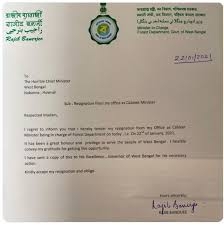 राजीव बनर्जी
রাজীব ব্যানার্জি
Rajib Banerjee
Minister-in-Charge
Forest Department, Govt. of West Bengal
22/01/2021
To
The Hon'ble Chief Minister
West Bengal
Nabanna, Howrah
Sub : Resignation from my office as Cabinet Minister
Respected Madam,
I regret to inform you that I hereby tender my resignation from my Office as Cabinet
Minister being in charge of Forest Department on today i.e. On 22nd of January, 2021.
It has been a great honour and privilege to serve the people of West Bengal. I heartily
convey my gratitude for getting this opportunity.
I have sent a copy of this to His Excellency, Governor of West Bengal for his necessary
action.
Kindly accept my resignation and oblige
Yours sincerely,
Rajib Banerjee
RAJIB BANERJEE